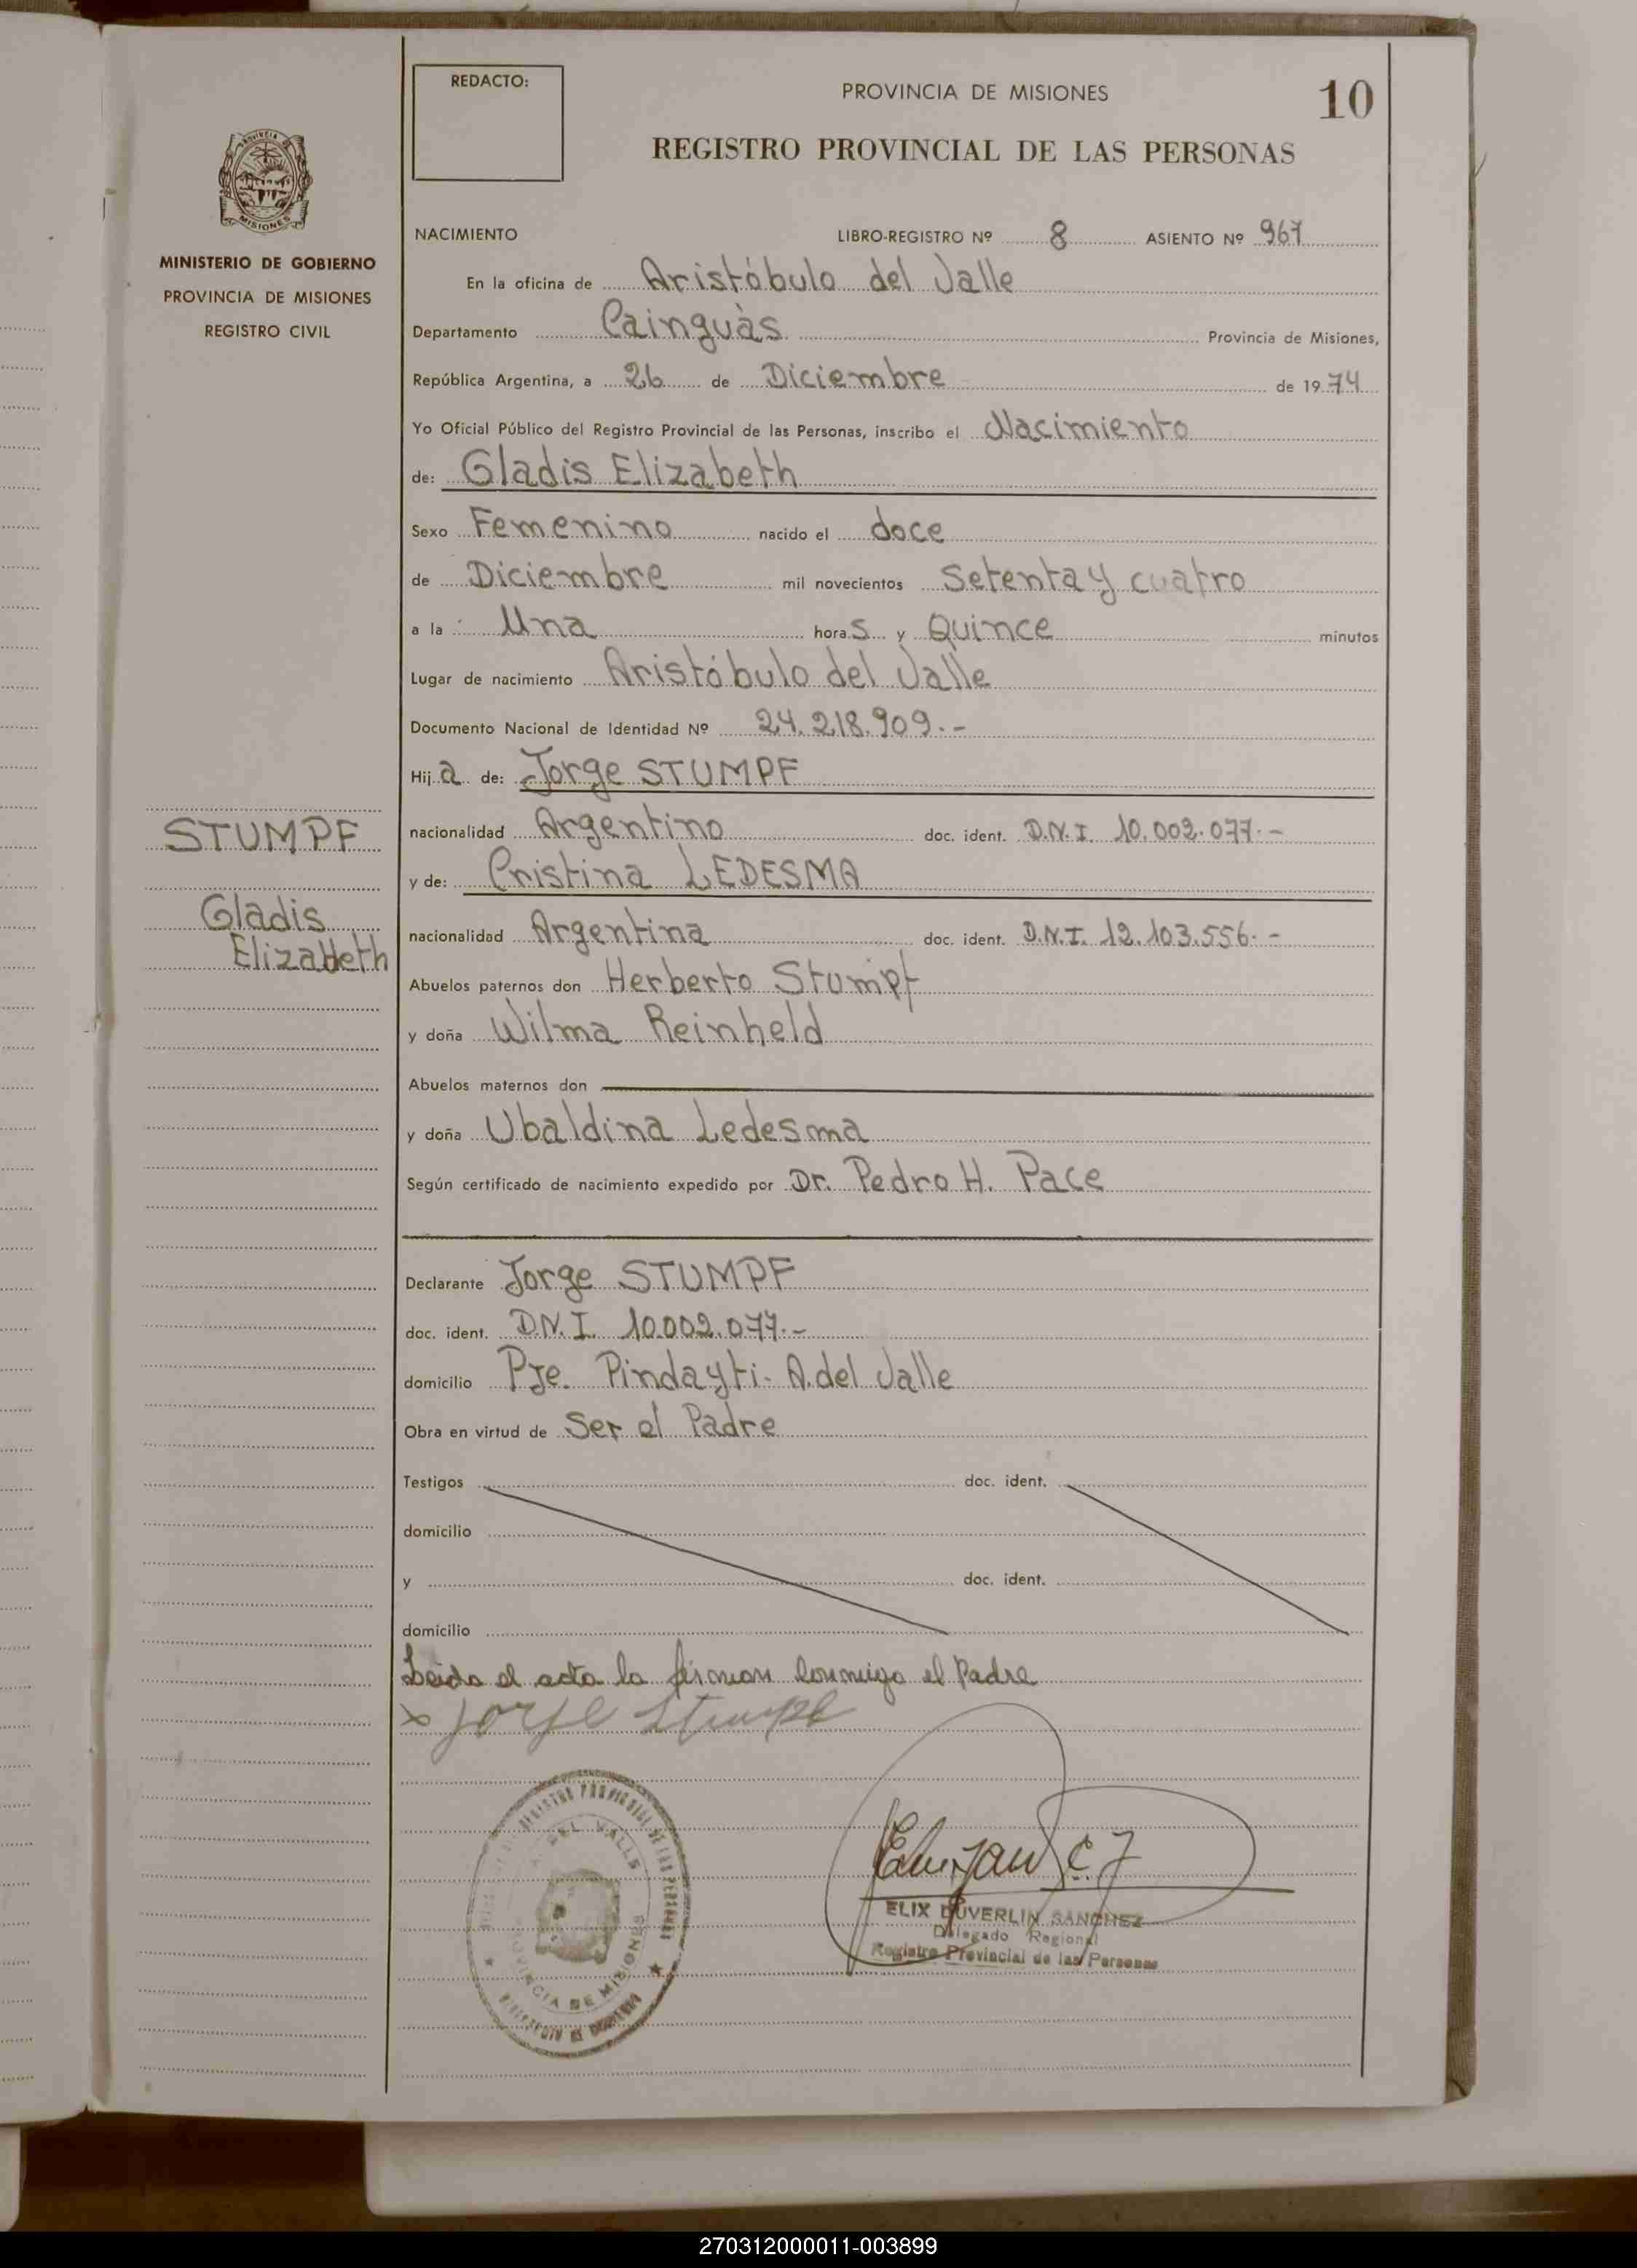 REDACTO:
PROVINCIA DE MISIONES
10
REGISTRO PROVINCIAL DE LAS PERSONAS
MISIONES
MINISTERIO DE GOBIERNO
PROVINCIA DE MISIONES
REGISTRO CIVIL
NACIMIENTO LIBRO-REGISTRO Nº 8 ASIENTO Nº 967
En la oficina de Aristóbulo del Valle
Departamento Cainguàs Provincia de Misiones,
República Argentina, a 26 de Diciembre de 1974
Yo Oficial Público del Registro Provincial de las Personas, inscribo el Nacimiento
de: Gladis Elizabeth
Sexo Femenino nacido el doce
de Diciembre mil novecientos Setenta y cuatro
a la Una horas y Quince minutos
Lugar de nacimiento Aristóbulo del Valle
Documento Nacional de Identidad Nº 24.218.909.-
Hija de: Jorge STUMPF
STUMPF
Gladis
Elizabeth
nacionalidad Argentino doc. ident. D.N.I. 10.002.077.-
y de: Cristina LEDESMA
nacionalidad Argentina doc. ident. D.N.I. 12.103.556.-
Abuelos paternos don Herberto Stumpf
y doña Wilma Reinheld
Abuelos maternos don
y doña Ubaldina Ledesma
Según certificado de nacimiento expedido por Dr. Pedro H. Pace
Declarante Jorge STUMPF
doc. ident. D.N.I. 10.002.077.-
domicilio Pje. Pindayti- A. del Valle
Obra en virtud de Ser el Padre
Testigos doc. ident.
domicilio
y doc. ident.
domicilio
Leida el acta la firman conmigo el Padre
x Jorge Stumpf
REGISTRO PROVINCIAL DE LAS PERSONAS
DEL VALLE
PROVINCIA DE MISIONES
ELIX DUVERLIN SANCHEZ
Delegado Regional
Registro Provincial de las Personas
270312000011-003899